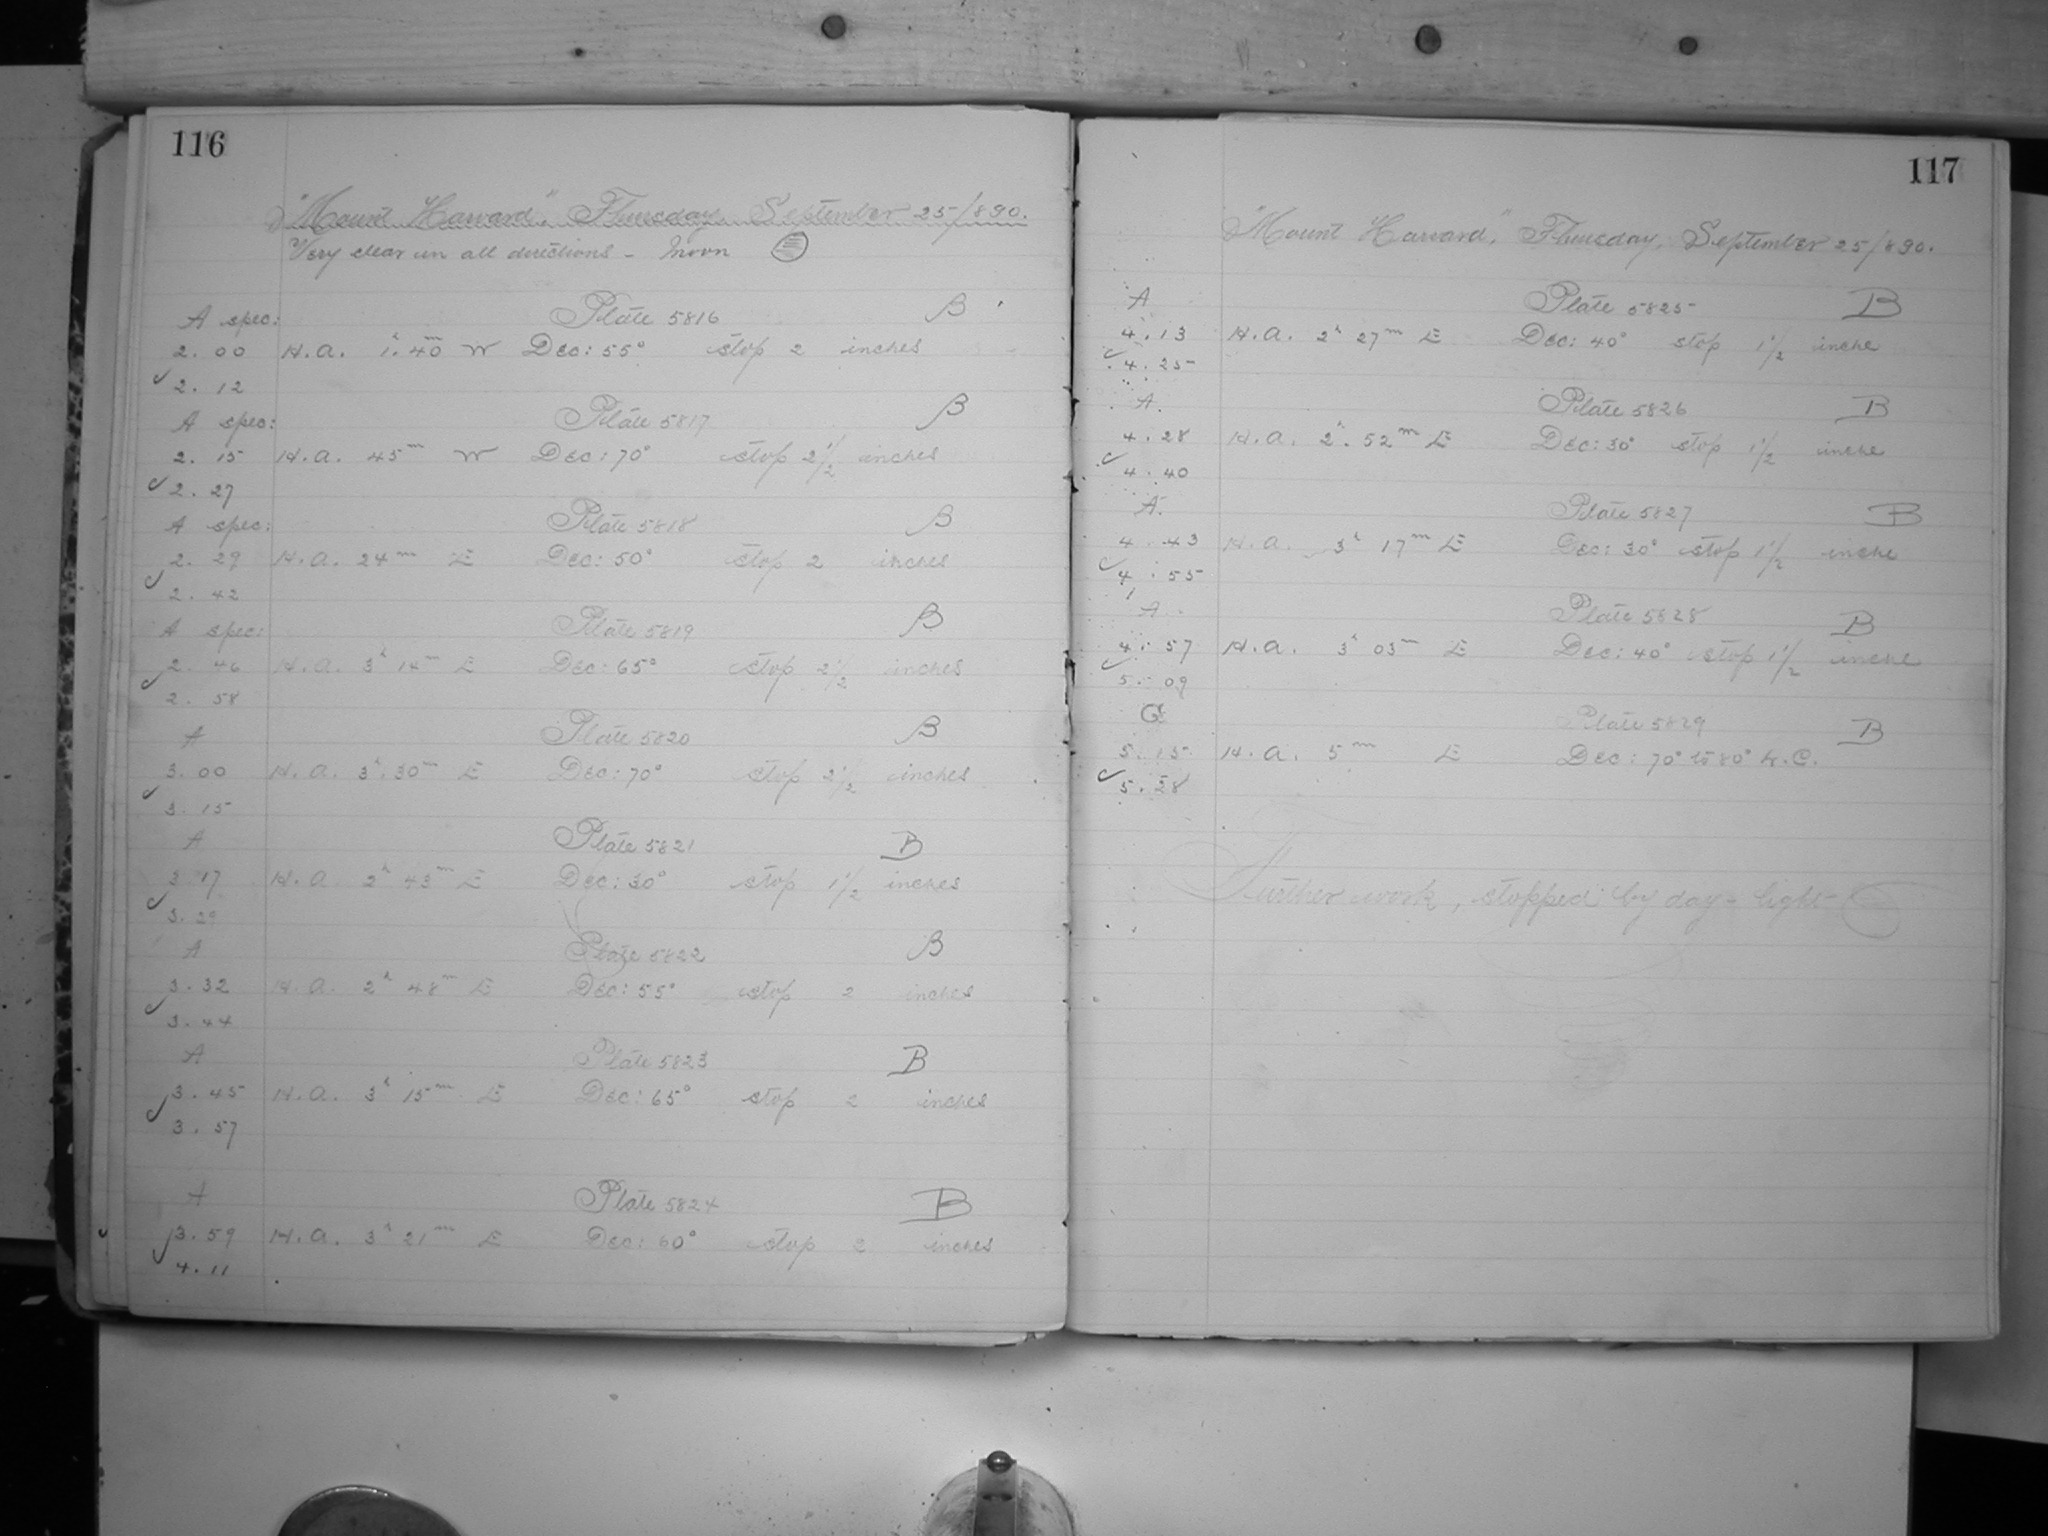 116
"Mount Harvard". Thursday, September 25/890.
Very clear in all directions - Moon
A spec: Plate 5816 B
2.00 H.a. 1h.40m W Dec: 55° stop 2 inches
✓2.12
A spec: Plate 5817 B
2.15 H.a. 45m W Dec: 70° stop 2 1/2 inches
✓2.27
A spec: Plate 5818 B
2.29 H.a. 24m E Dec: 50° stop 2 inches
✓2.42
A spec: Plate 5819 B
2.46 H.a. 3h 14m E Dec: 65° stop 2 1/2 inches
✓2.58
A Plate 5820 B
3.00 H.a. 3h.30m E Dec: 70° stop 2 1/2 inches
✓3.15
A Plate 5821 B
3.17 H.a 2h 43m E Dec: 30° stop 1 1/2 inches
✓3.29
A Plate 5822 B
3.32 H.a. 2h 48m E Dec: 55° stop 2 inches
✓3.44
A Plate 5823 B
3.45 H.a. 3h 15m E Dec: 65° stop 2 inches
✓3.57
A Plate 5824 B
✓3.59 H.a. 3h 21m E Dec: 60° stop 2 inches
4.11
117
"Mount Harvard," Thursday, September 25/890.
A Plate 5825 B
4.13 H.a. 2h 27m E Dec: 40° stop 1 1/2 inche
✓4.25
A. Plate 5826 B
4.28 H.a. 2h. 52m E Dec: 30° stop 1 1/2 inche
✓4.40
A. Plate 5827 B
4.43 H.a. 3h 17m E Dec: 30° stop 1 1/2 inche
✓4.55
A. Plate 5828 B
4.57 H.a. 3h 03m E Dec: 40° stop 1 1/2 inche
✓5.09
Plate 5829 B
5.15 H.a. 5m E Dec: 70° to 80° L.C.
✓5.28
Further work, stopped by day-light